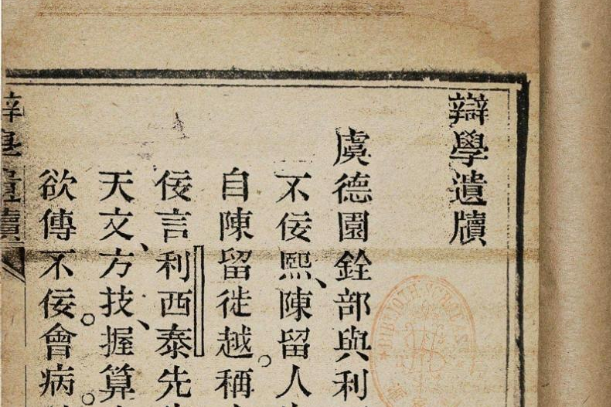 辯學遺牘
虞德園銓部與利
不佞熙、陳留人
自陳留徙越。稱
佞言利西泰先
天文、方技、握算
欲傳不佞會病